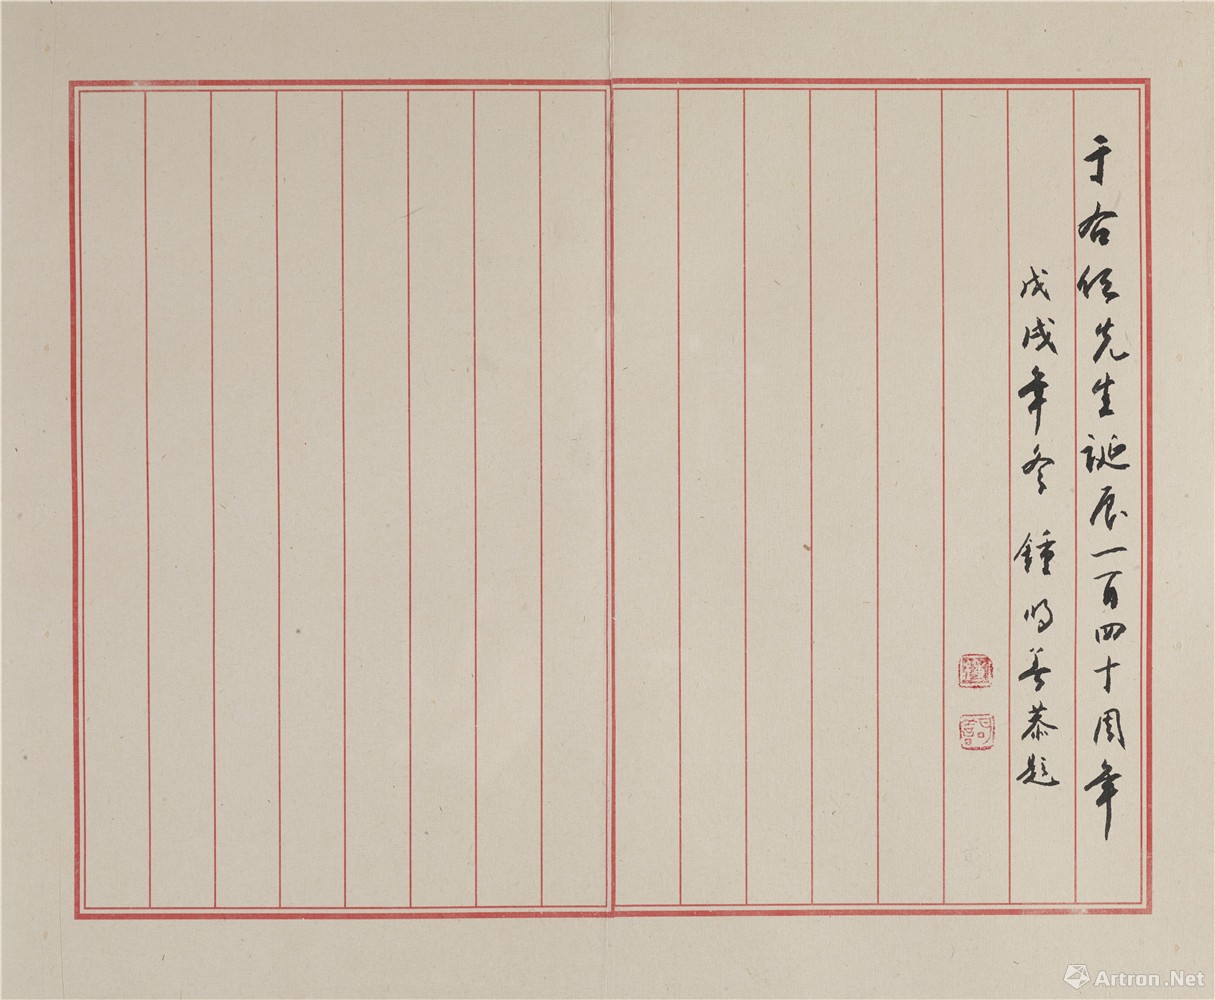 于右任先生诞辰一百四十周年
戊戌年冬 鍾明善恭题
Artron.Net